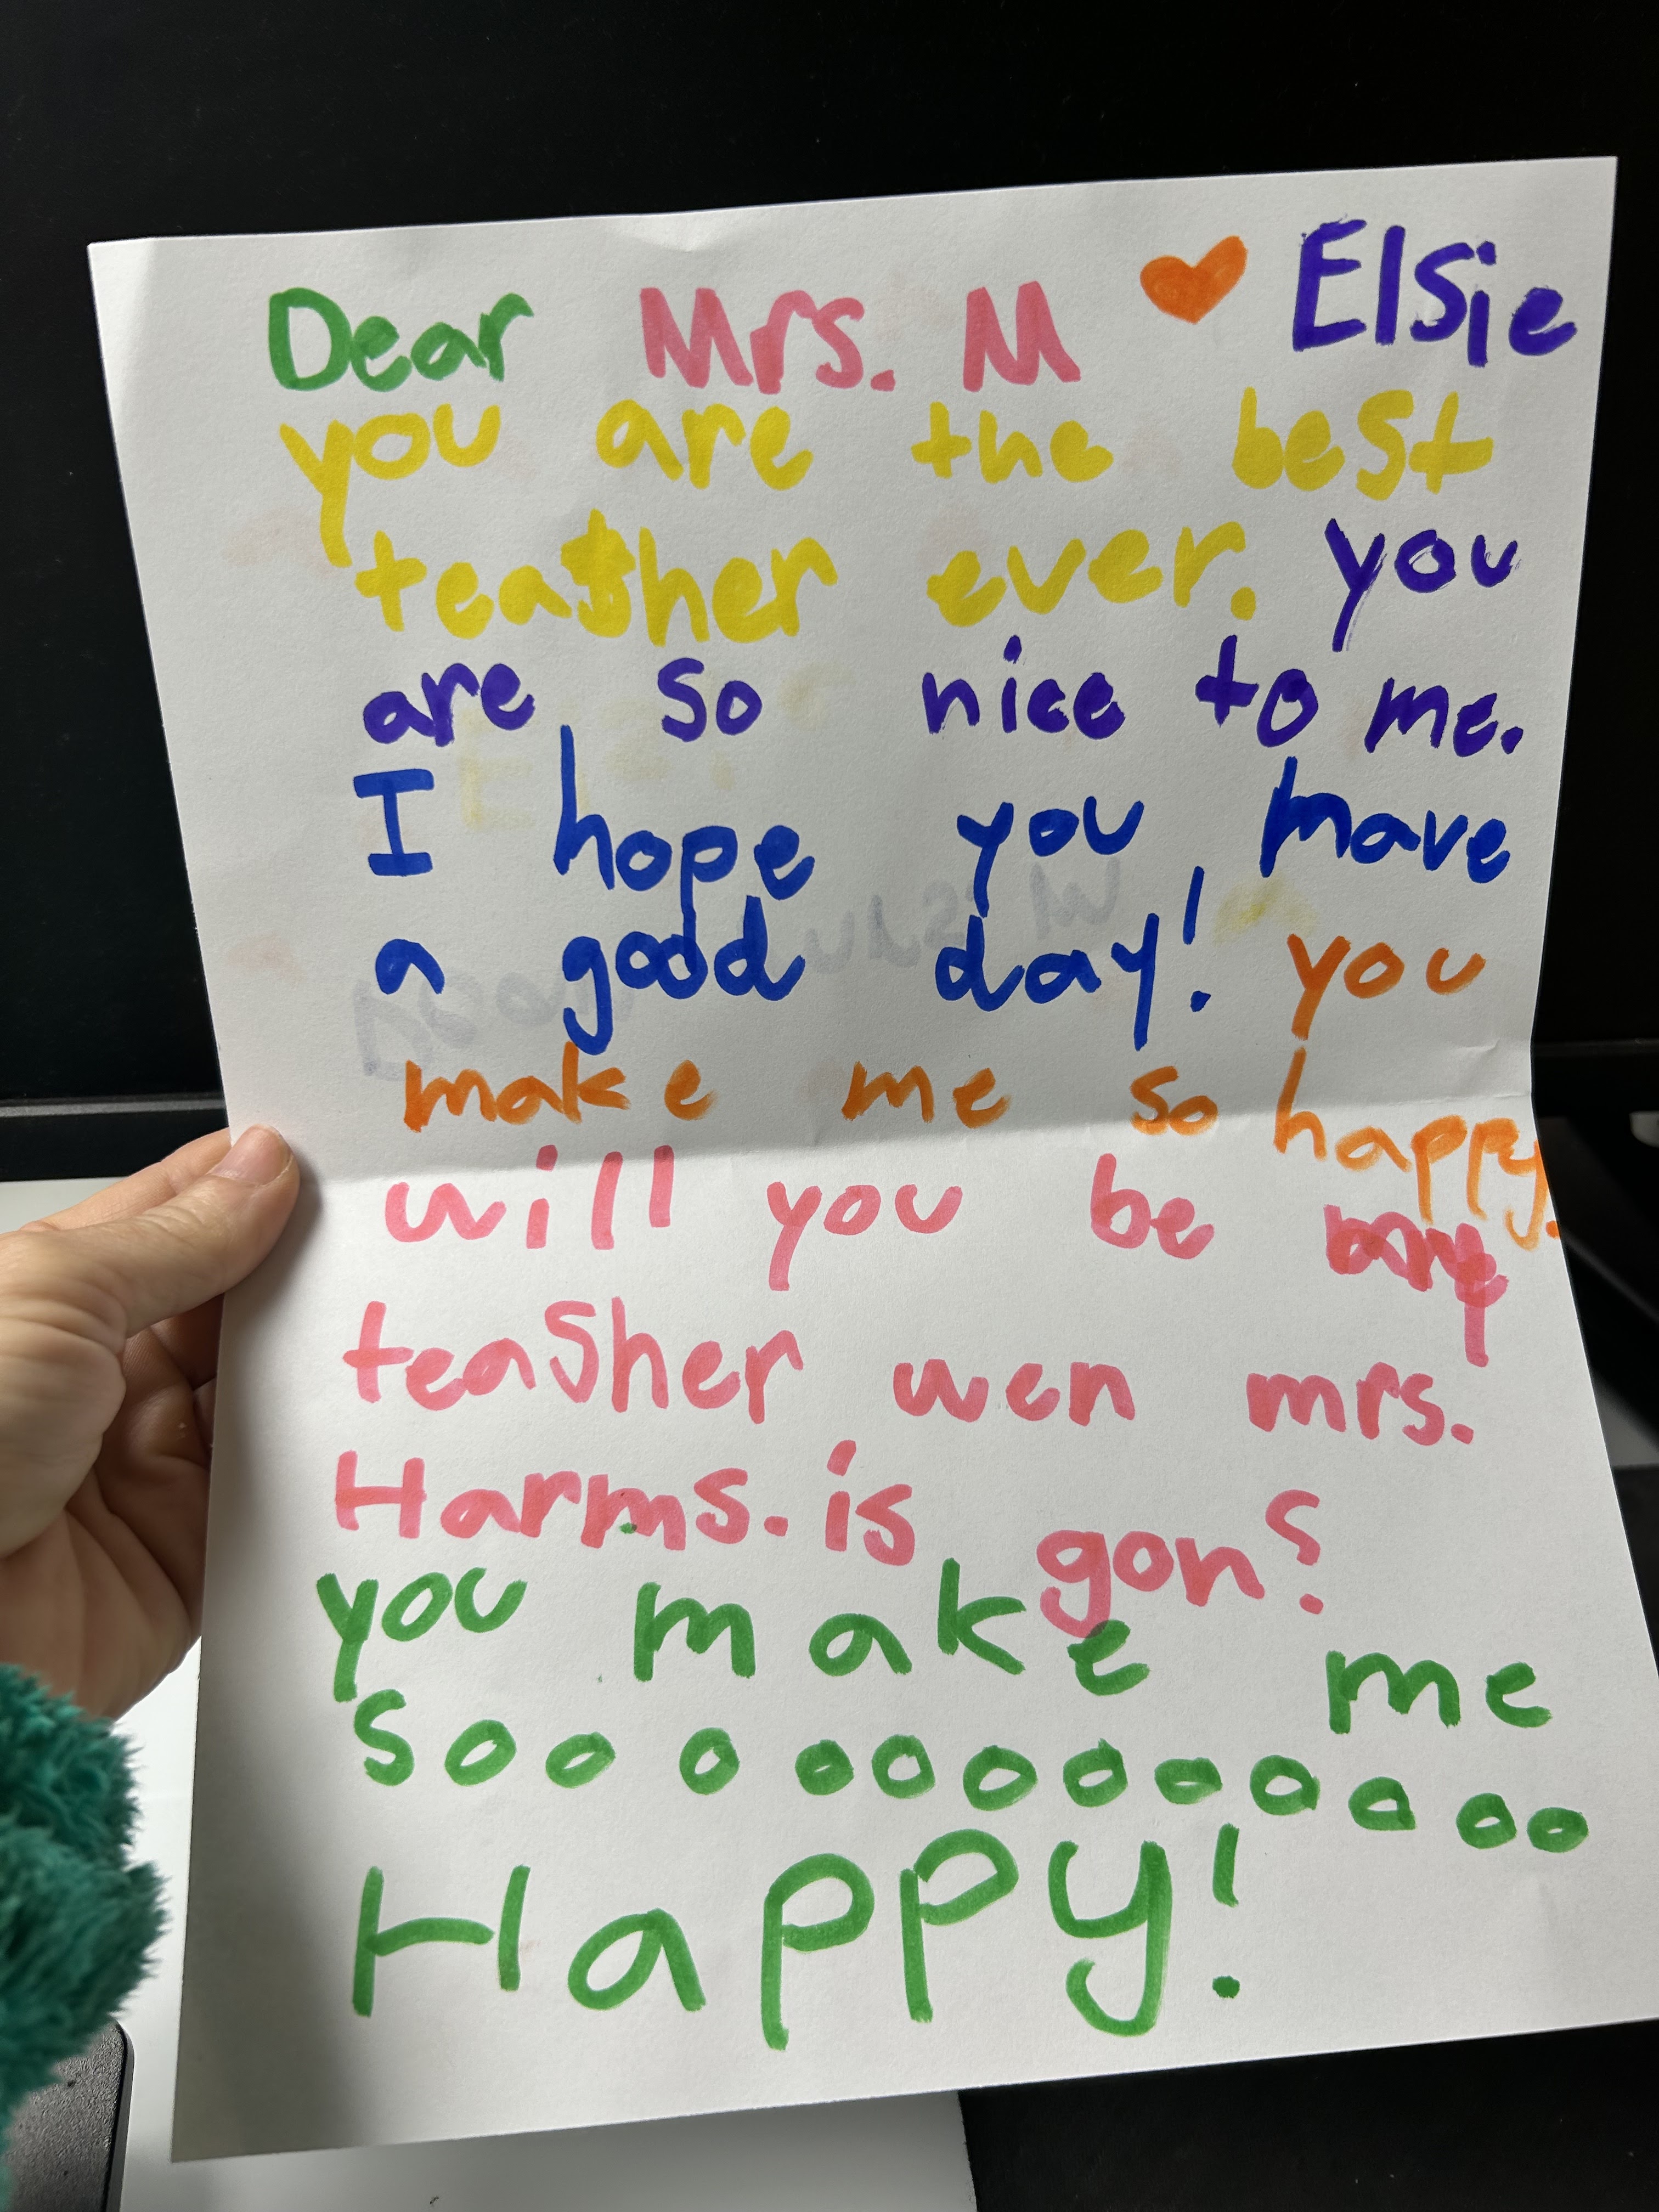 Dear Mrs. M ❤ Elsie
you are the best
teasher ever. you
are so nice to me.
I hope you have
a good day! you
make me so happy.
will you be my
teasher wen mrs.
Harms. is gon?
you make me
sooooooooooooo
Happy!